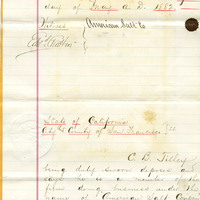 day of June A. D. 1882.
Witness
American Salt Co
State of California
City & County of San Francisco } ss
C. B. Tilley
being duly sworn deposes and
says he is a member of the
firm doing business under the
name of American Salt Company